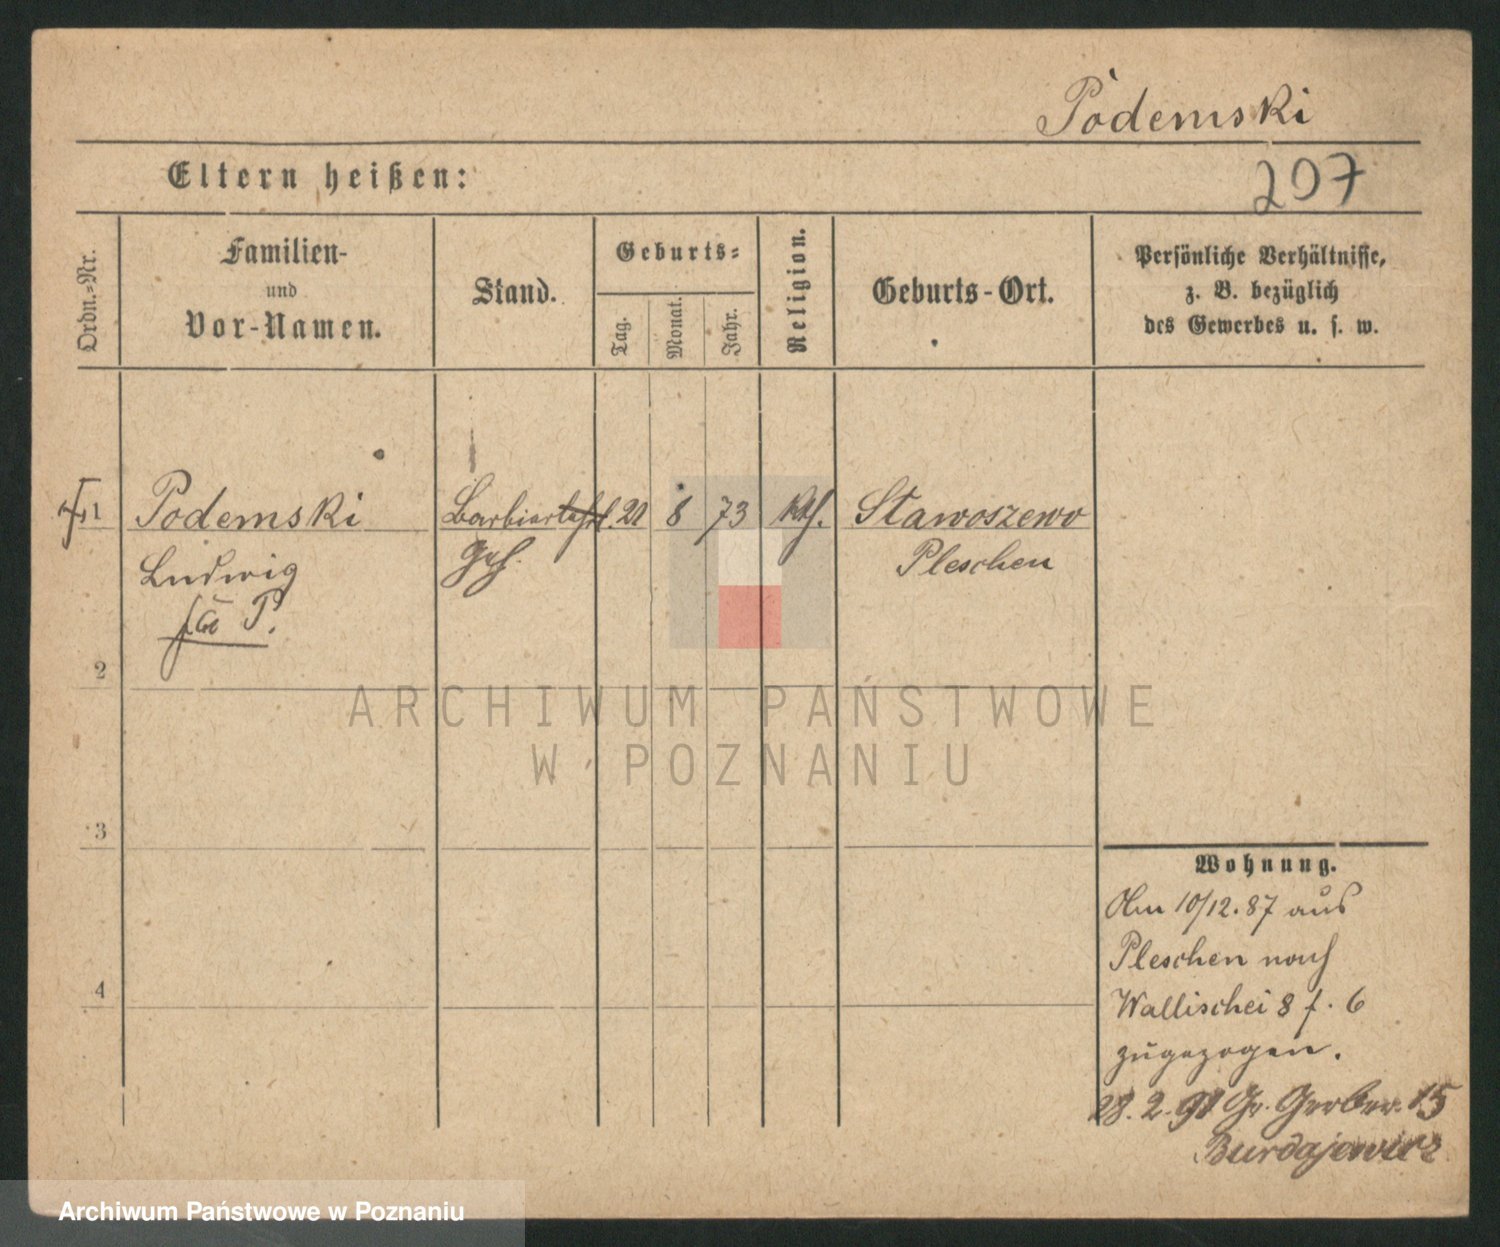 Podemski
Eltern heißen:
207
Ordn.-Nr.
Familien-
und
Vor-Namen.
Stand.
Geburts-
Tag.
Monat.
Jahr.
Religion.
Geburts-Ort.
Persönliche Verhältnisse,
z. B. bezüglich
des Gewerbes u. s. w.
1
Podemski
Barbierlehrl.
8
73
kth.
Stawoszewo
Ludwig
Geh.
Pleschen
2
ARCHIWUM PAŃSTWOWE
W POZNANIU
3
Wohnung.
Am 10/12.87 aus
Pleschen nach
4
Wallischei 8 f. 6
zugezogen.
28. 2. 91 Gr. Gerber. 15
Burdajewicz
Archiwum Państwowe w Poznaniu